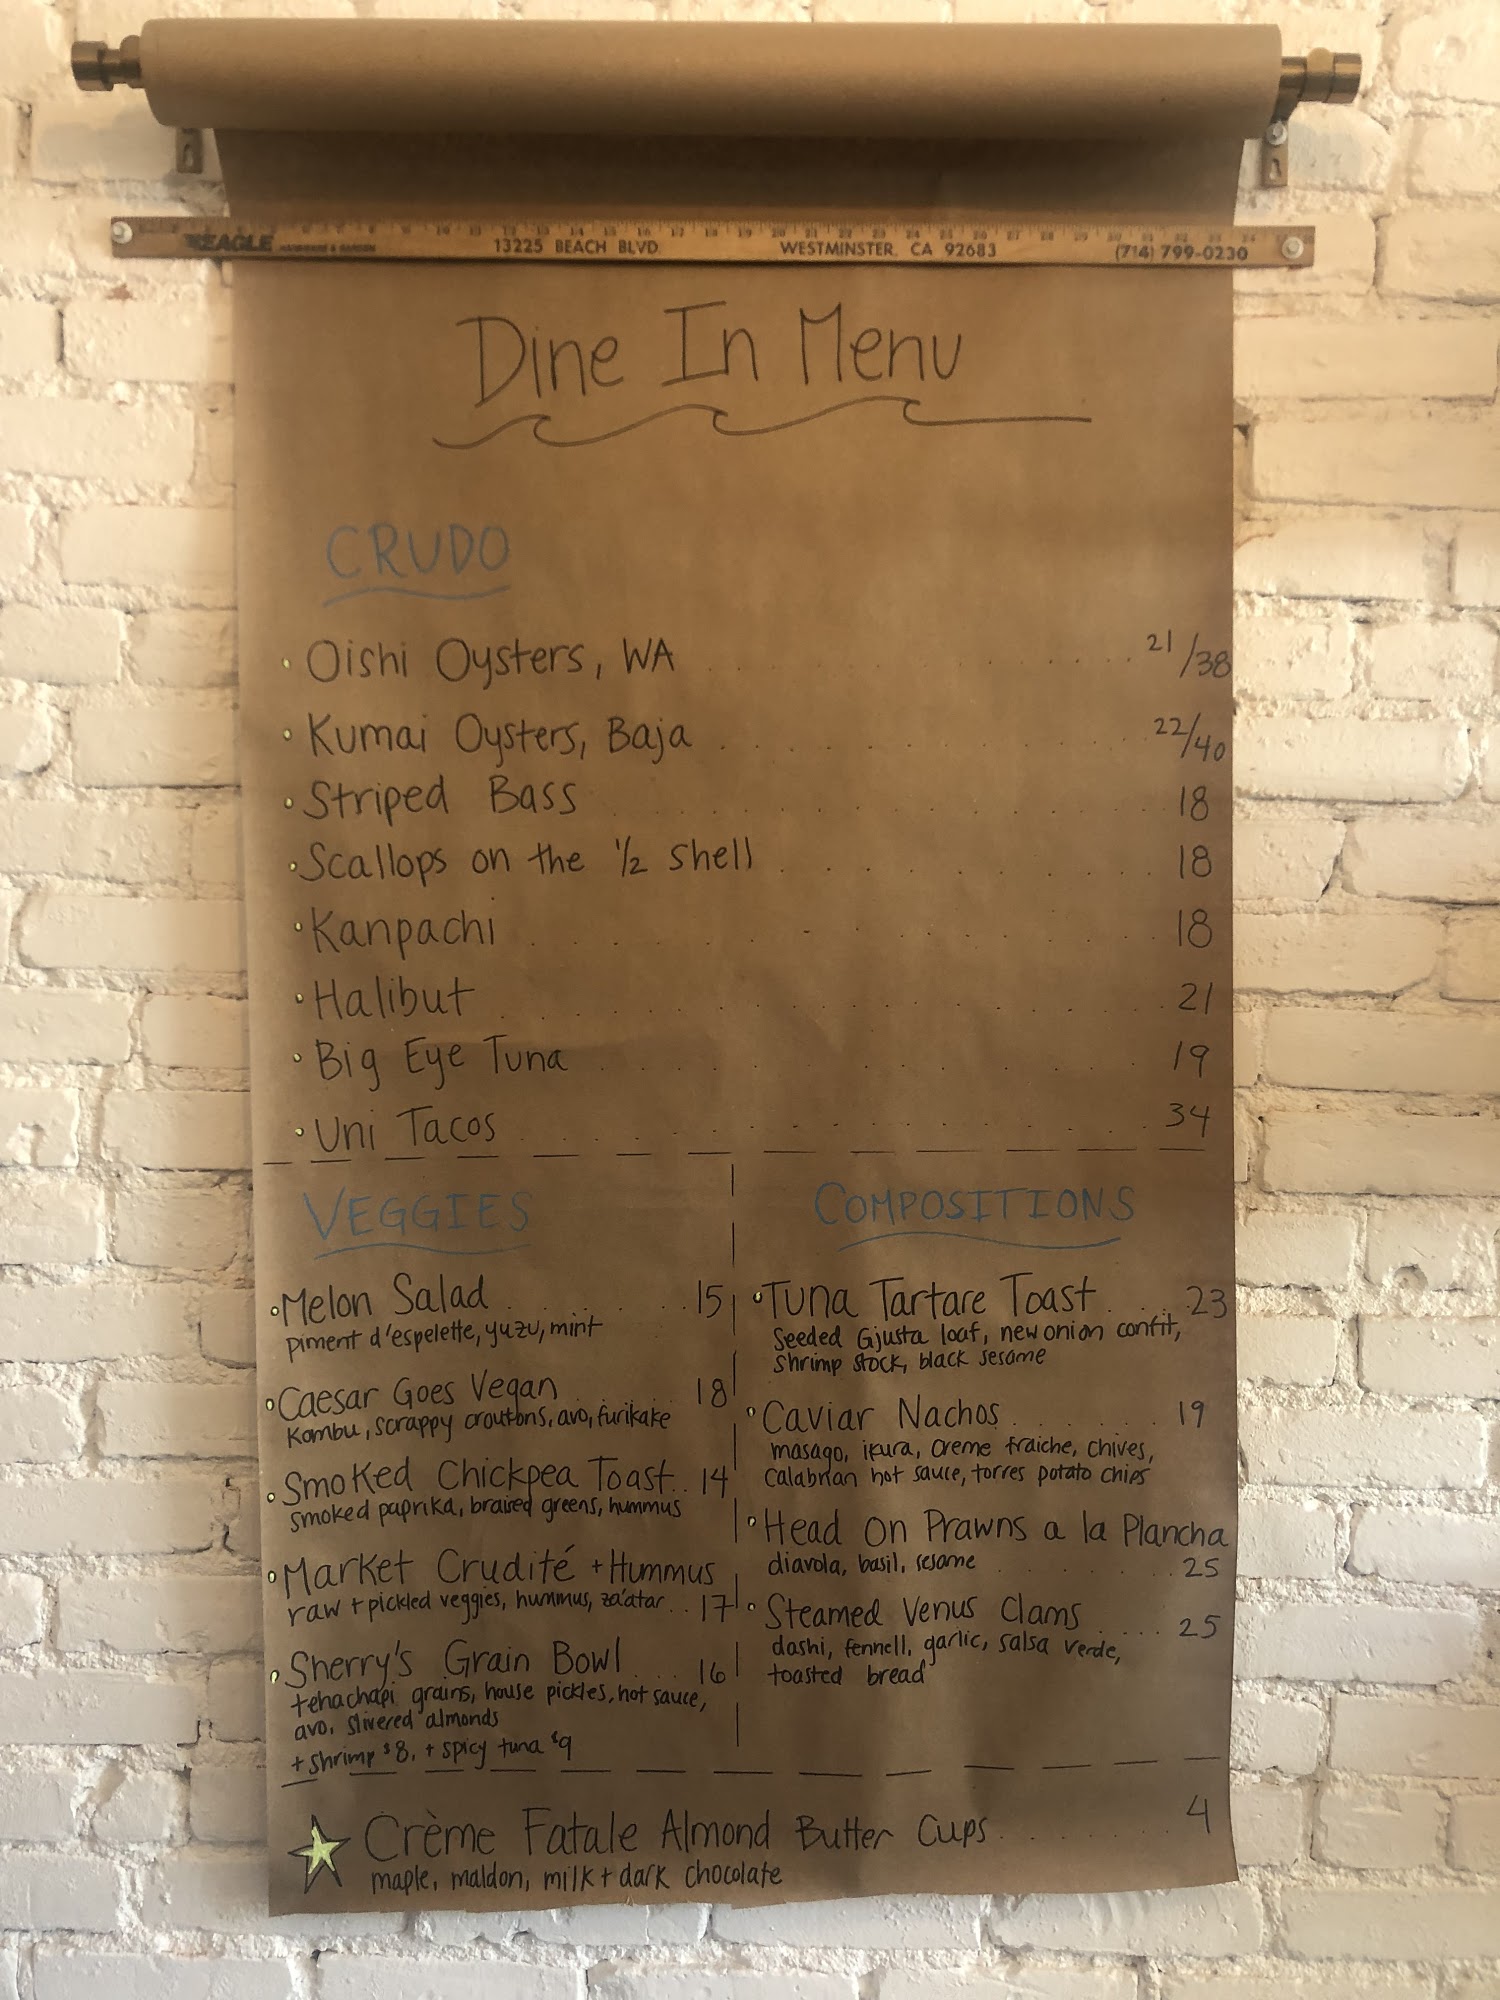 EAGLE HARDWARE & GARDEN 13225 BEACH BLVD. WESTMINSTER, CA 92683 (714) 799-0230
Dine In Menu
CRUDO
Oishi Oysters, WA 21/38
Kumai Oysters, Baja 22/40
Striped Bass 18
Scallops on the 1/2 shell 18
Kanpachi 18
Halibut 21
Big Eye Tuna 19
Uni Tacos 34
VEGGIES
Melon Salad 15
piment d'espelette, yuzu, mint
Caesar Goes Vegan 18
Kombu, scrappy croutons, avo, furikake
Smoked Chickpea Toast 14
smoked paprika, braised greens, hummus
Market Crudité + Hummus
raw + pickled veggies, hummus, za'atar 17
Sherry's Grain Bowl 16
tehachapi grains, house pickles, hot sauce,
avo, slivered almonds
+ shrimp $8, + spicy tuna $9
COMPOSITIONS
Tuna Tartare Toast 23
Seeded Gjusta loaf, new onion confit,
shrimp stock, black sesame
Caviar Nachos 19
masago, ikura, creme fraiche, chives,
calabrian hot sauce, torres potato chips
Head On Prawns a la Plancha
diavola, basil, sesame 25
Steamed Venus Clams 25
dashi, fennell, garlic, salsa verde,
toasted bread
Crème Fatale Almond Butter Cups 4
maple, maldon, milk + dark chocolate